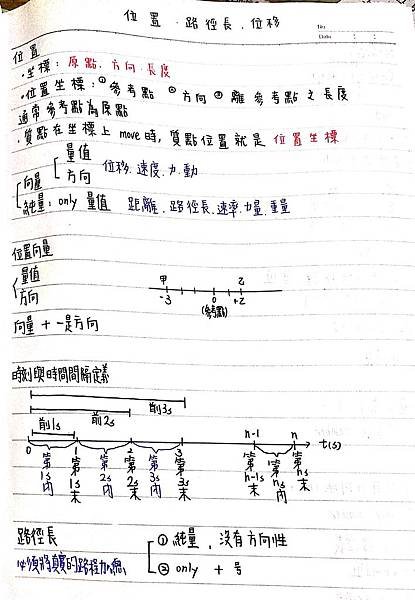 位置．路徑長．位移
No.
Date
位置
·坐標：原點．方向．長度
·位置坐標：①參考點 ②方向 ③離參考點之長度
通常參考點為原點
·質點在坐標上move時，質點位置就是位置坐標
向量 量值 方向 位移．速度．力．動
純量：only 量值 距離．路徑長．速率．力量．重量
位置向量
量值
方向
甲 乙
-3 0 +2
(參考點)
向量 + -是方向
時刻與時間間隔定義
前3s
前2s
前1s
0 1 2 3 n-1 n t(s)
第1s內 第1s末 第2s內 第2s末 第3s內 第3s末 第n-1s末 第ns內 第ns末
路徑長 ①純量，沒有方向性
必須將真實的路程加總 ② only + 號